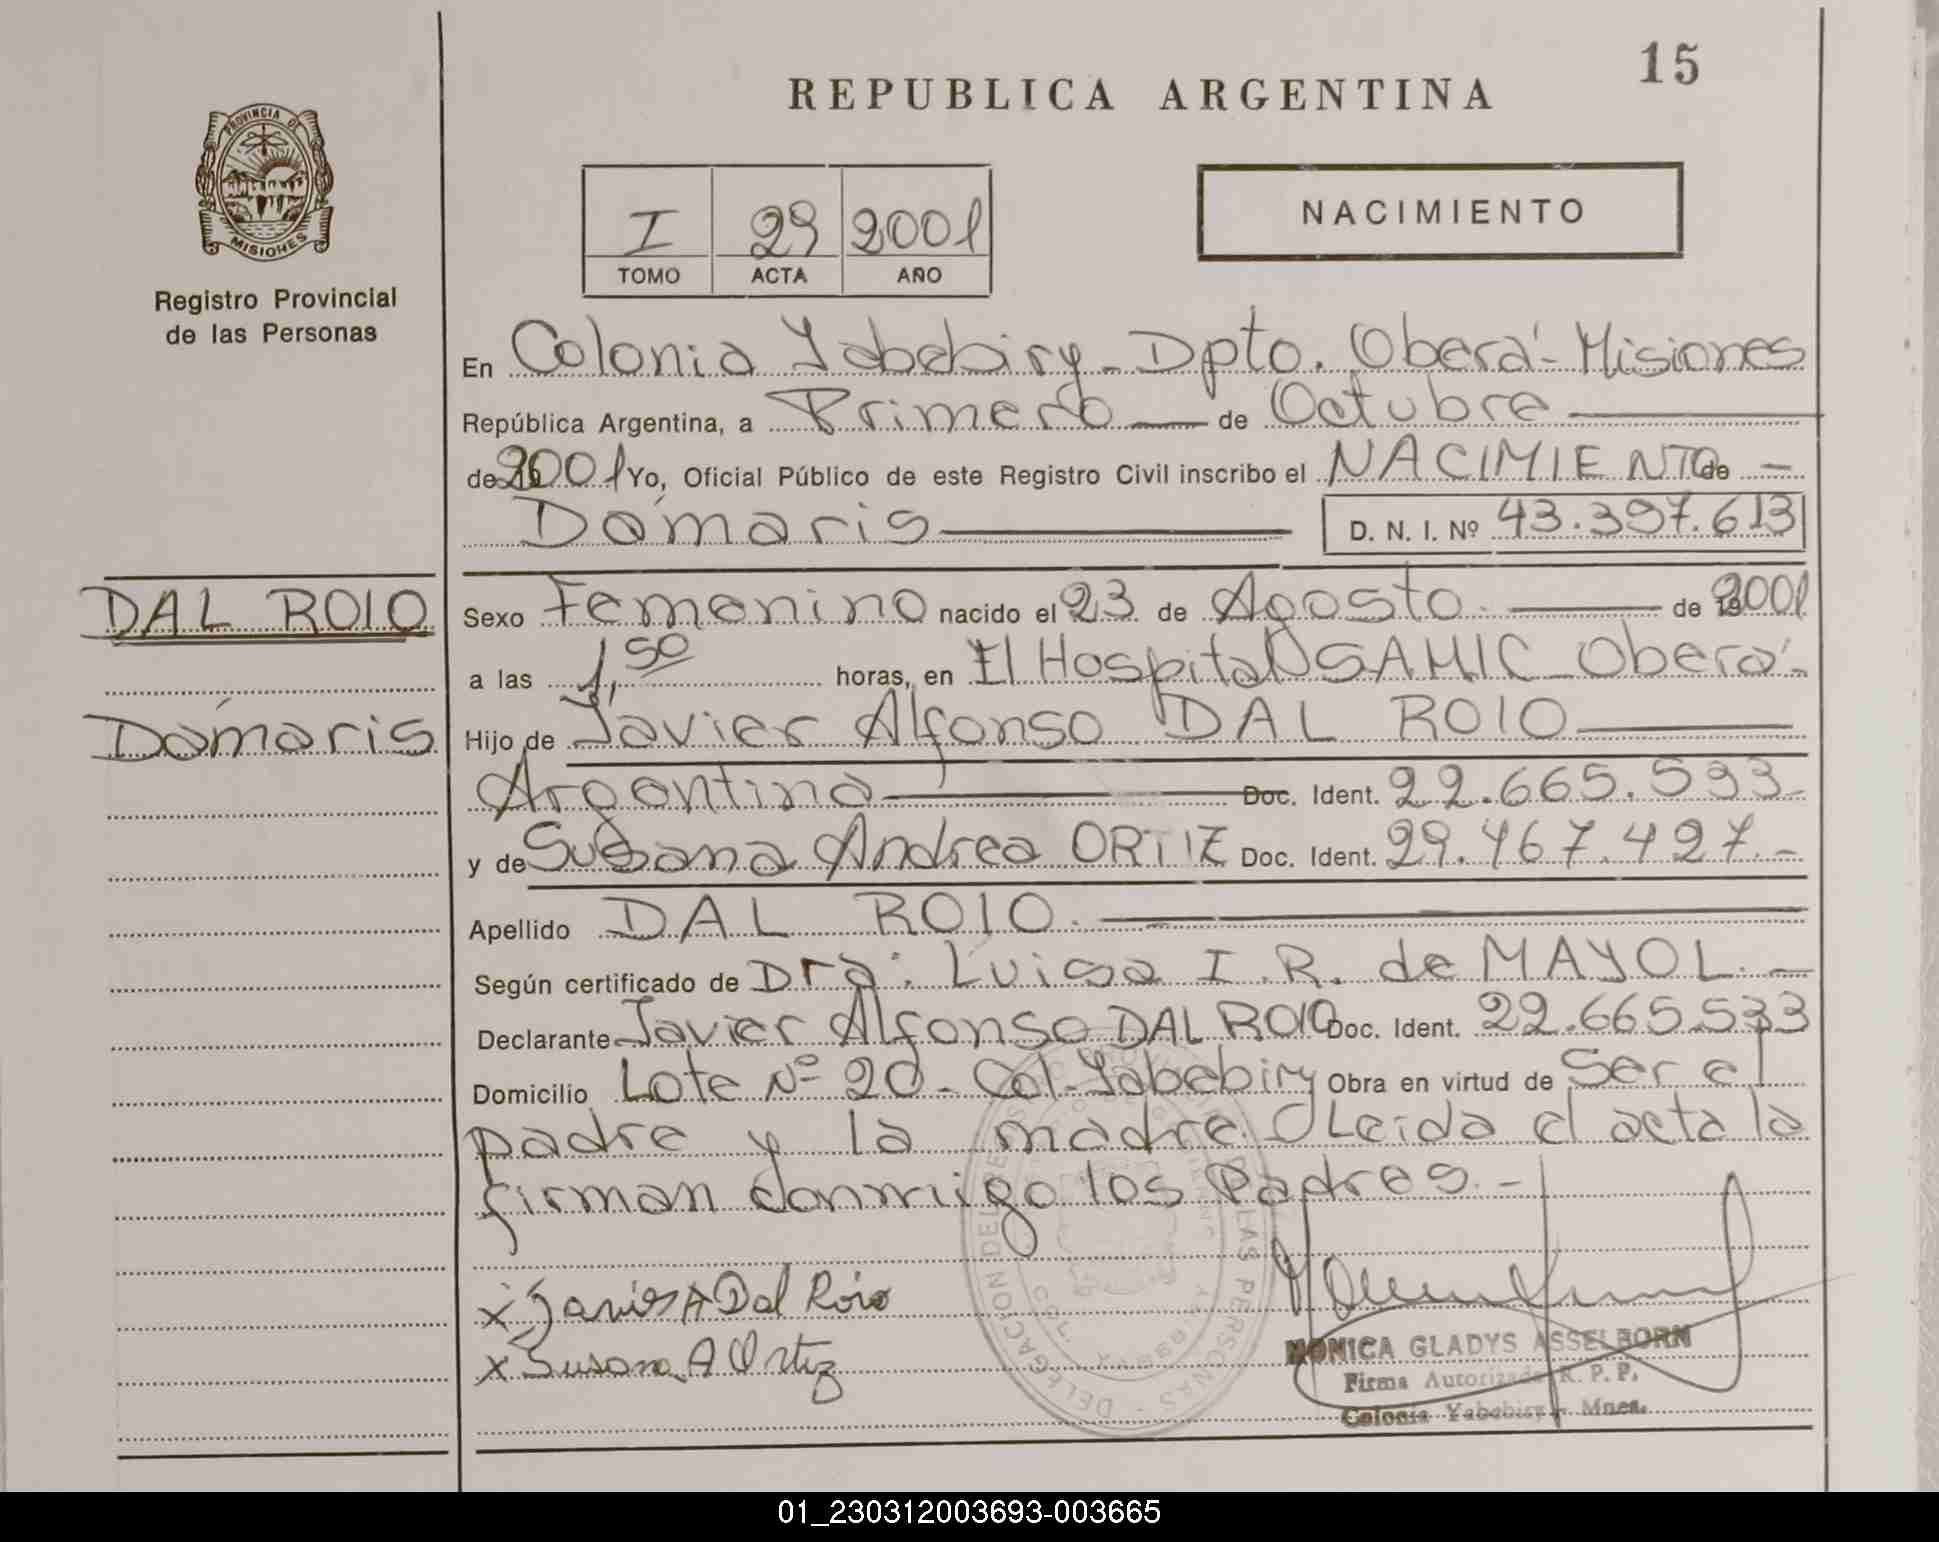 15
REPUBLICA ARGENTINA
PROVINCIA DE
MISIONES
Registro Provincial
de las Personas
I 29 2001
TOMO ACTA AÑO
NACIMIENTO
En Colonia Yabebiry - Dpto. Oberá - Misiones
República Argentina, a Primero — de Octubre
de 2001 Yo, Oficial Público de este Registro Civil inscribo el NACIMIENTO de —
Dámaris D. N. I. Nº 43.397.613
DAL ROIO
Sexo Femenino nacido el 23 de Agosto. de 2001
a las 1,50 horas, en El Hospital SAMIC Oberá-
Dámaris
Hijo de Javier Alfonso DAL ROIO
Argentina Doc. Ident. 22.665.533-
y de Susana Andrea ORTIZ Doc. Ident. 29.467.427.-
Apellido DAL ROIO.
Según certificado de Dra: Luisa I. R. de MAYOL. -
Declarante Javier Alfonso DAL ROIO Doc. Ident. 22.665.533
Domicilio Lote Nº 20 - Col. Yabebiry Obra en virtud de Ser el
padre y la madre. Leida el acta la
firman conmigo los Padres. -
x Javier A Dal Róio
x Susana A Ortiz
DELEGACION DEL REG. PROVINCIAL DE LAS PERSONAS
COL. YABEBIRY
MONICA GLADYS ASSELBORN
Firma Autorizada R. P. P.
Colonia Yabebiry - Mnes.
01_230312003693-003665